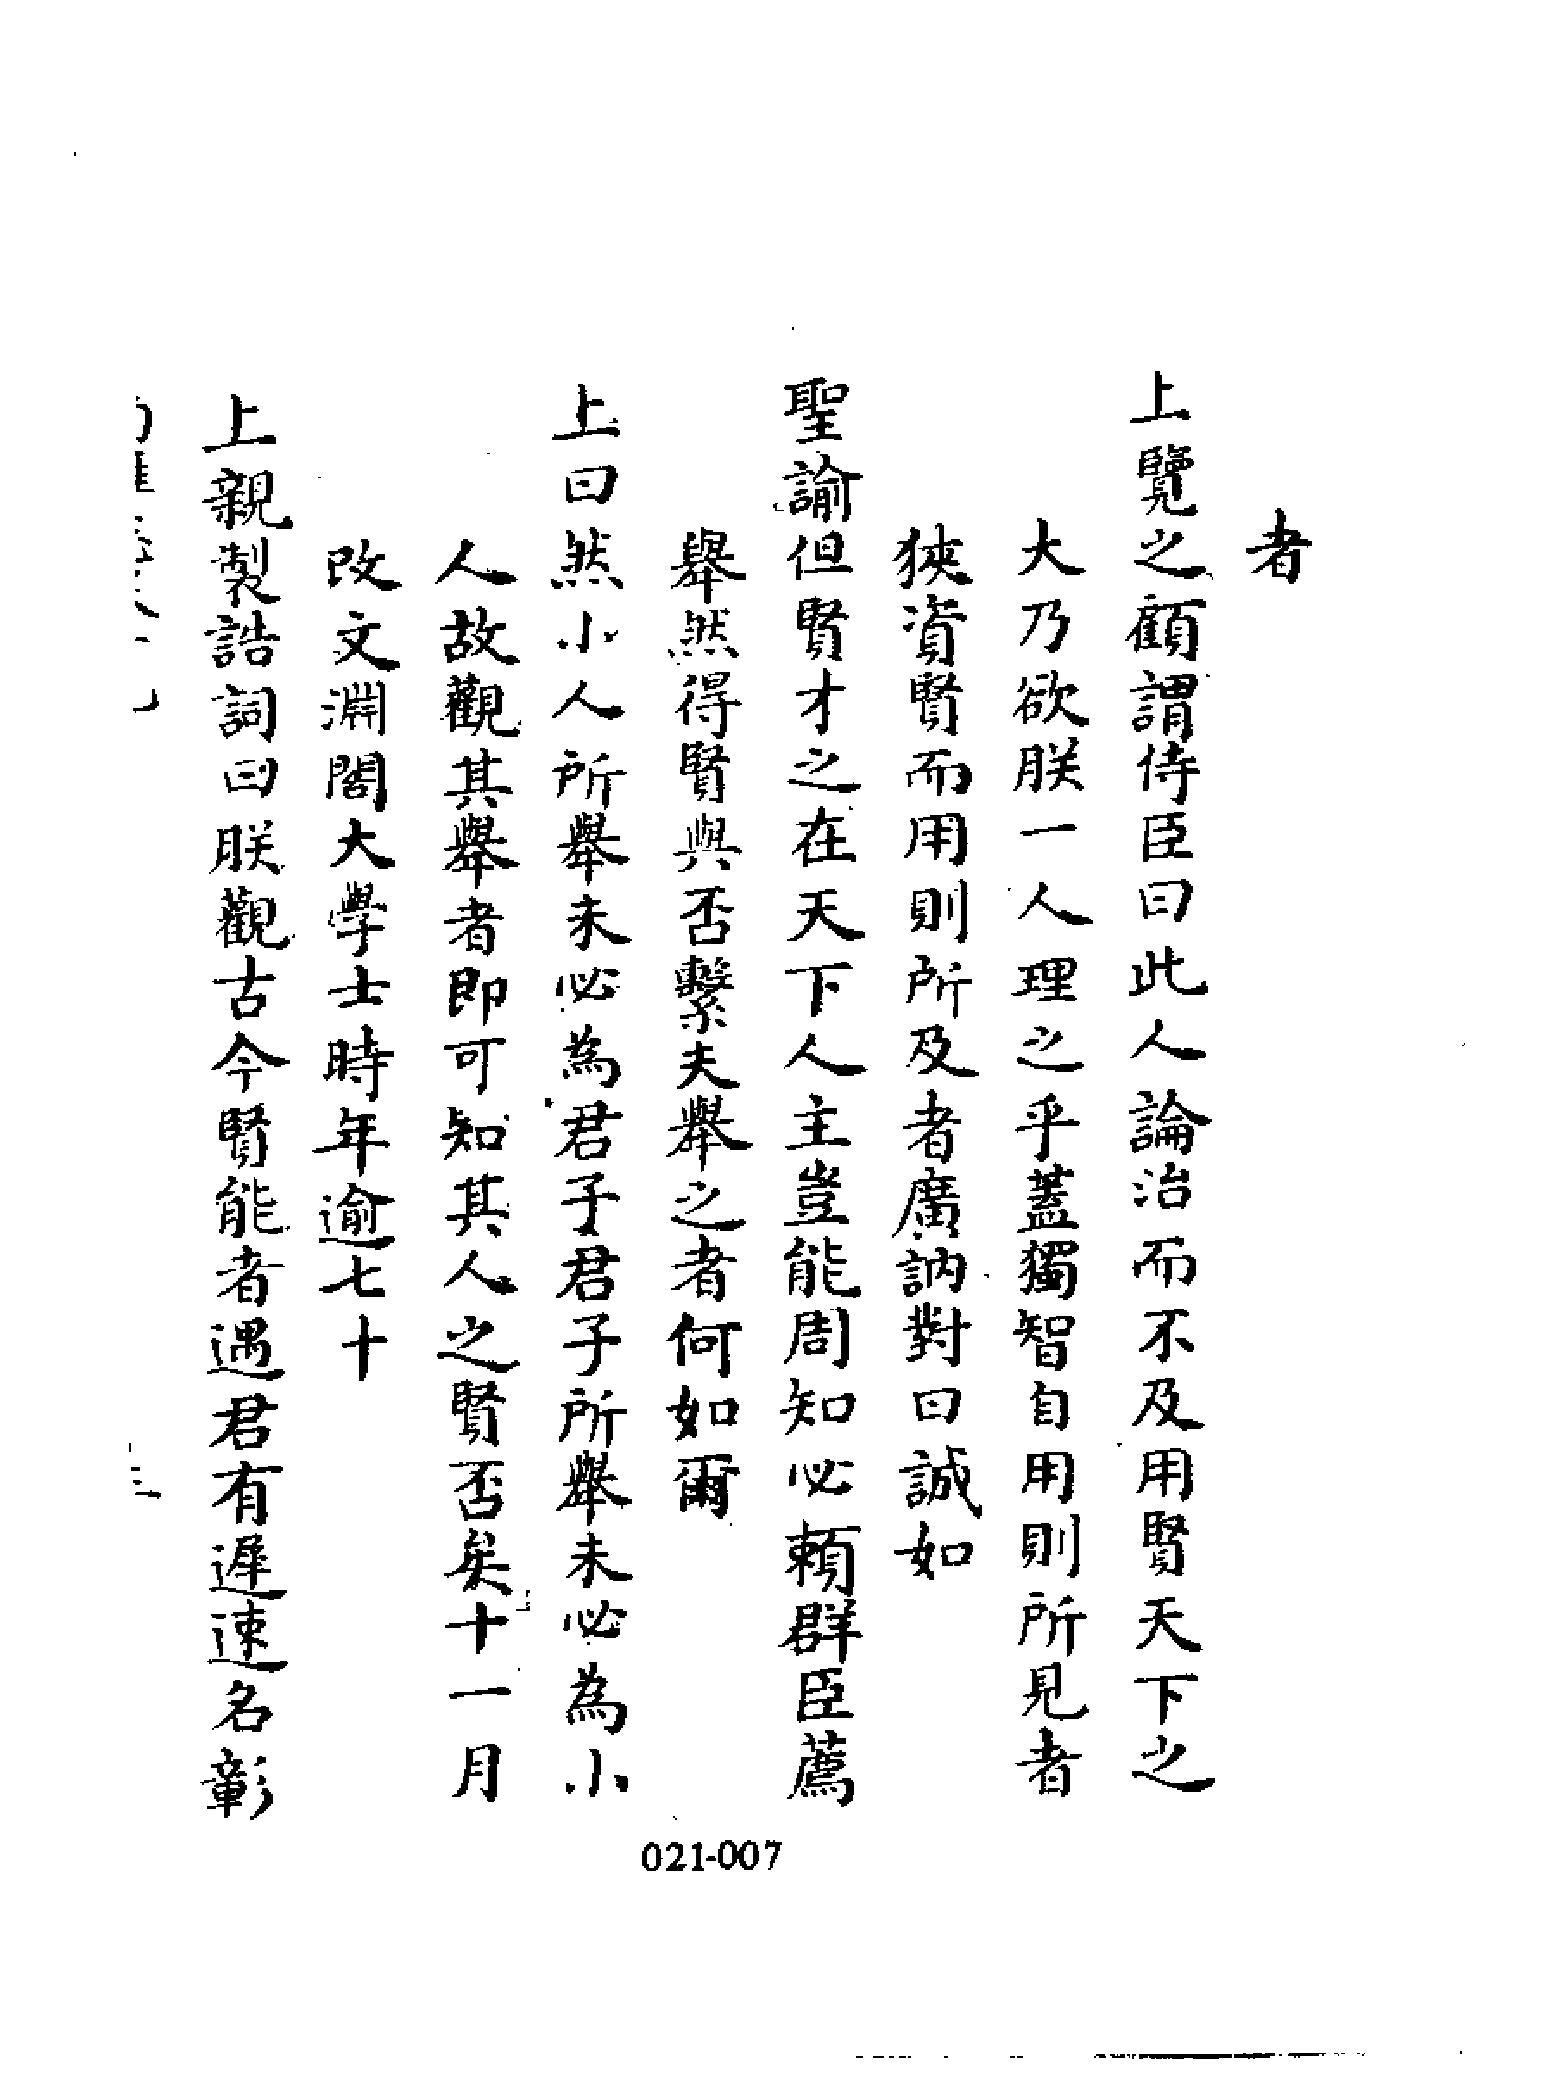 者
上覽之顧謂侍臣曰此人論治而不及用賢天下之
大乃欲朕一人理之乎蓋獨智自用則所見者
狹資賢而用則所及者廣訥對曰誠如
聖諭但賢才之在天下人主豈能周知必賴群臣薦
舉然得賢與否繫夫舉之者何如爾
上曰然小人所舉未必為君子君子所舉未必為小
人故觀其舉者即可知其人之賢否矣十一月
改文淵閣大學士時年逾七十
上親製誥詞曰朕觀古今賢能者遇君有遲速名彰
021-007